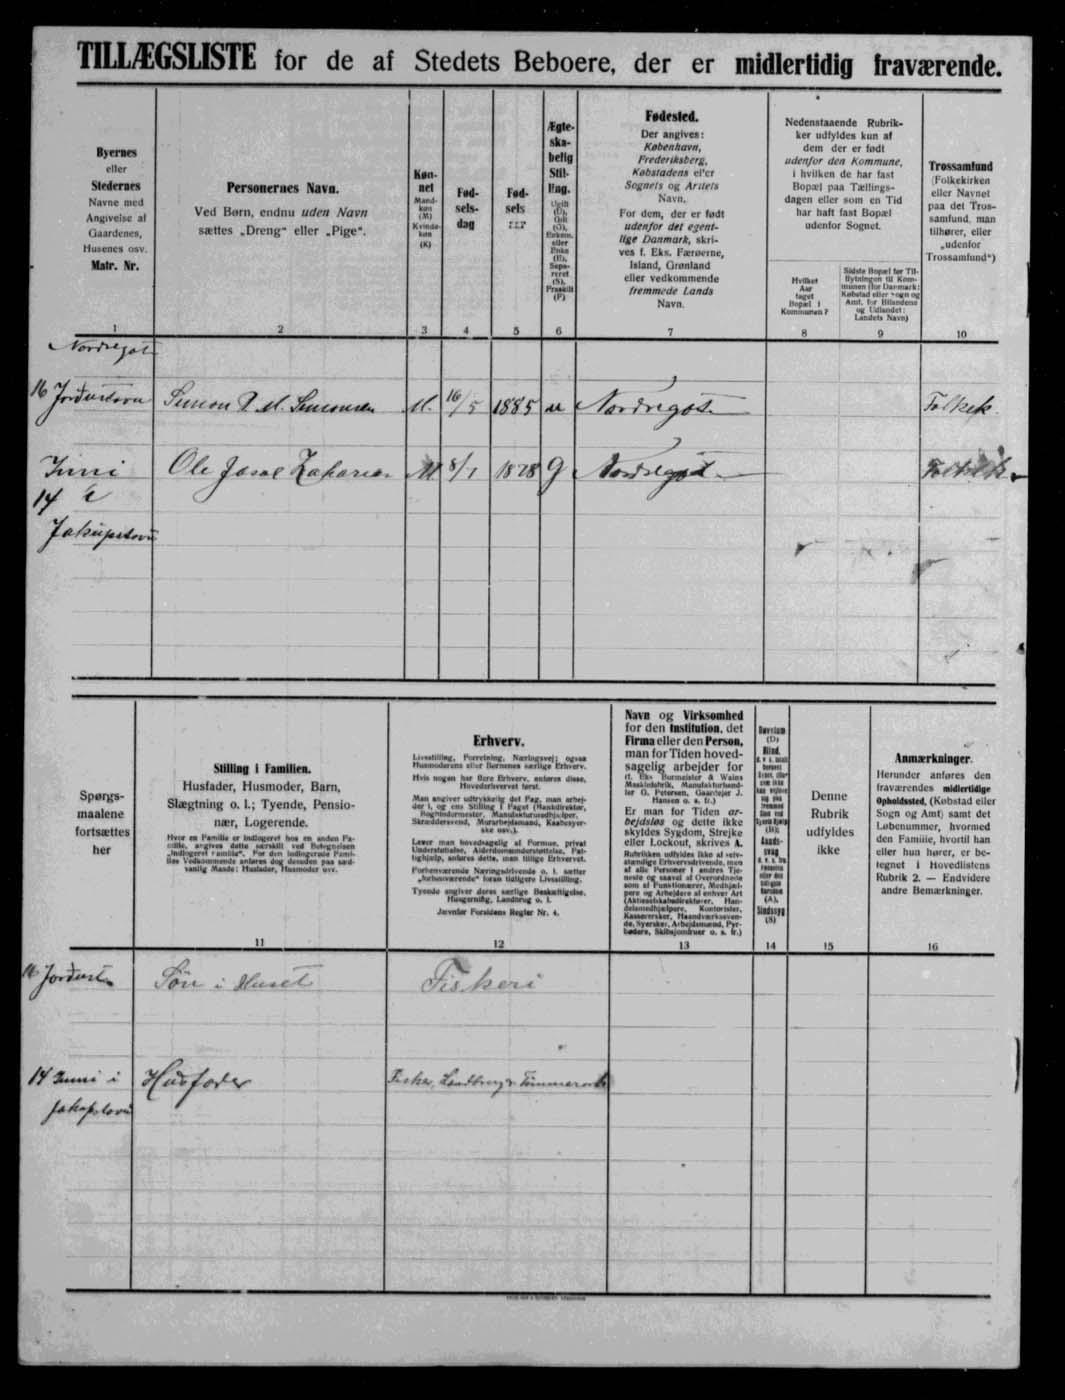 TILLÆGSLISTE for de af Stedets Beboere, der er midlertidig fraværende.
Byernes
eller
Stedernes
Navne med
Angivelse af
Gaardenes,
Husenes osv.
Matr. Nr.
1
Personernes Navn.
Ved Børn, endnu uden Navn
sættes „Dreng" eller „Pige".
2
Køn-
net
Mand-
køn
(M)
Kvinde-
køn
(K)
3
Fød-
sels-
dag
4
Fød-
sels
5
Ægte-
ska-
belig
Stil-
ling.
Ugift
(U),
Gift
(G),
Enkem.
eller
Enke
(E),
Sepa-
reret
(S),
Fraskilt
(F)
6
Fødested.
Der angives:
København,
Frederiksberg,
Købstadens eller
Sognets og Amtets
Navn.
For dem, der er født
udenfor det egent-
lige Danmark, skri-
ves f. Eks. Færøerne,
Island, Grønland
eller vedkommende
fremmede Lands
Navn.
7
Nedenstaaende Rubrik-
ker udfyldes kun af
dem der er født
udenfor den Kommune,
i hvilken de har fast
Bopæl paa Tællings-
dagen eller som en Tid
har haft fast Bopæl
udenfor Sognet.
Hvilket
Aar
taget
Bopæl i
Kommunen?
8
Sidste Bopæl før Til-
flytningen til Kom-
munen (for Danmark:
Købstad eller Sogn og
Amt, for Bilandene
og Udlandet:
Landets Navn)
9
Trossamfund
(Folkekirken
eller Navnet
paa det Tros-
samfund, man
tilhører, eller
„udenfor
Trossamfund")
10
Nordregøt
16 Jorðustovu Simon P. M. Simonsen M. 16/5 1885 u Nordregøt Folkek.
Inni Ole Jacob Zakarias M 8/1 1878 G Nordregøt Folkek.
14 i
Jakupstovu
Spørgs-
maalene
fortsættes
her
Stilling i Familien.
Husfader, Husmoder, Barn,
Slægtning o. l.; Tyende, Pensio-
nær, Logerende.
Hvor en Familie er indlogeret hos en anden Fa-
milie, angives dette særskilt ved Betegnelsen
„indlogeret Familie". For den indlogerede Fami-
lies Vedkommende anføres dog desuden paa sæd-
vanlig Maade: Husfader, Husmoder osv.
11
Erhverv.
Livsstilling, Forretning, Næringsvej; ogsaa
Husmoderens eller Børnenes særlige Erhverv.
Hvis nogen har flere Erhverv, anføres disse,
Hovederhvervet først.
Man angiver udtrykkelig det Fag, man arbej-
der i, og ens Stilling i Faget (Bankdirektør,
Bogbindermester, Manufakturmedhjælper,
Skræddersvend, Murarbejdsmand, Kaabesyer-
ske osv.).
Lever man hovedsagelig af Formue, privat
Understøttelse, Alderdomsunderstøttelse, Fat-
tighjælp, anføres dette, man tillige Erhvervet.
Forhenværende Næringsdrivende o. l. sætter
„forhenværende" foran tidligere Livsstilling.
Tyende angiver deres særlige Beskæftigelse,
Husgerning, Landbrug o. l.
Jævnfør Forsidens Regler Nr. 4.
12
Navn og Virksomhed
for den Institution, det
Firma eller den Person,
man for Tiden hoved-
sagelig arbejder for
(f. Eks Burmeister & Wains
Maskinfabrik, Manufakturhand-
ler G. Petersen, Gaardejer J.
Hansen o. s. fr.)
Er man for Tiden ar-
bejdsløs og dette ikke
skyldes Sygdom, Strejke
eller Lockout, skrives A.
Rubrikken udfyldes ikke af selv-
stændige Erhvervsdrivende, men
af alle Personer i andres Tje-
neste og saavel af Overordnede
som af Funktionærer, Medhjæl-
pere og Arbejdere af enhver Art
(Aktieselskabsdirektører, Han-
delsmedhjælpere, Kontorister,
Kasserersker, Haandværkssven-
de, Syersker, Arbejdsmænd, Fyr-
bødere, Skibsjomfruer o. s. fr.)
13
Døvstum
(D)
Blind,
Aands-
svag
(A),
Sindssyg
(S)
14
Denne
Rubrik
udfyldes
ikke
15
Anmærkninger.
Herunder anføres den
fraværendes midlertidige
Opholdssted, (Købstad eller
Sogn og Amt) samt det
Løbenummer, hvormed
den Familie, hvortil han
eller hun hører, er be-
tegnet i Hovedlistens
Rubrik 2. — Endvidere
andre Bemærkninger.
16
16 Jorðust. Søn i Huset Fiskeri
14 Inni i Husfader Fisker, Landbrug
Jakupstovu